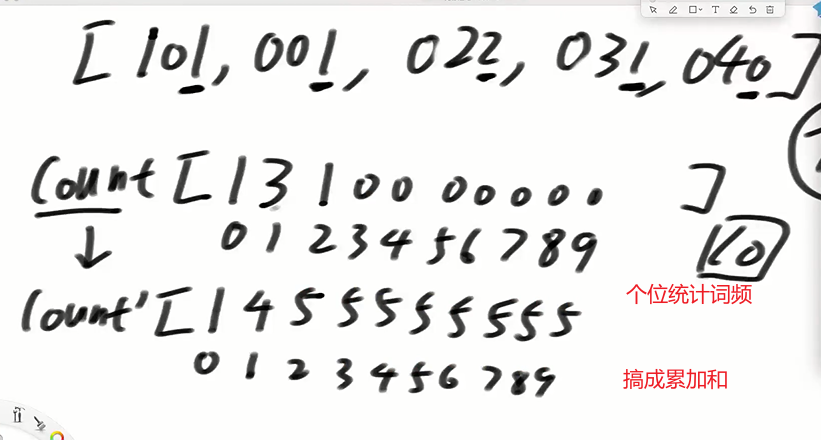 [101, 001, 022, 031, 040]
Count [1 3 1 0 0 0 0 0 0 0 ]
0 1 2 3 4 5 6 7 8 9
个位统计词频
Count' [1 4 5 5 5 5 5 5 5 5
0 1 2 3 4 5 6 7 8 9
搞成累加和